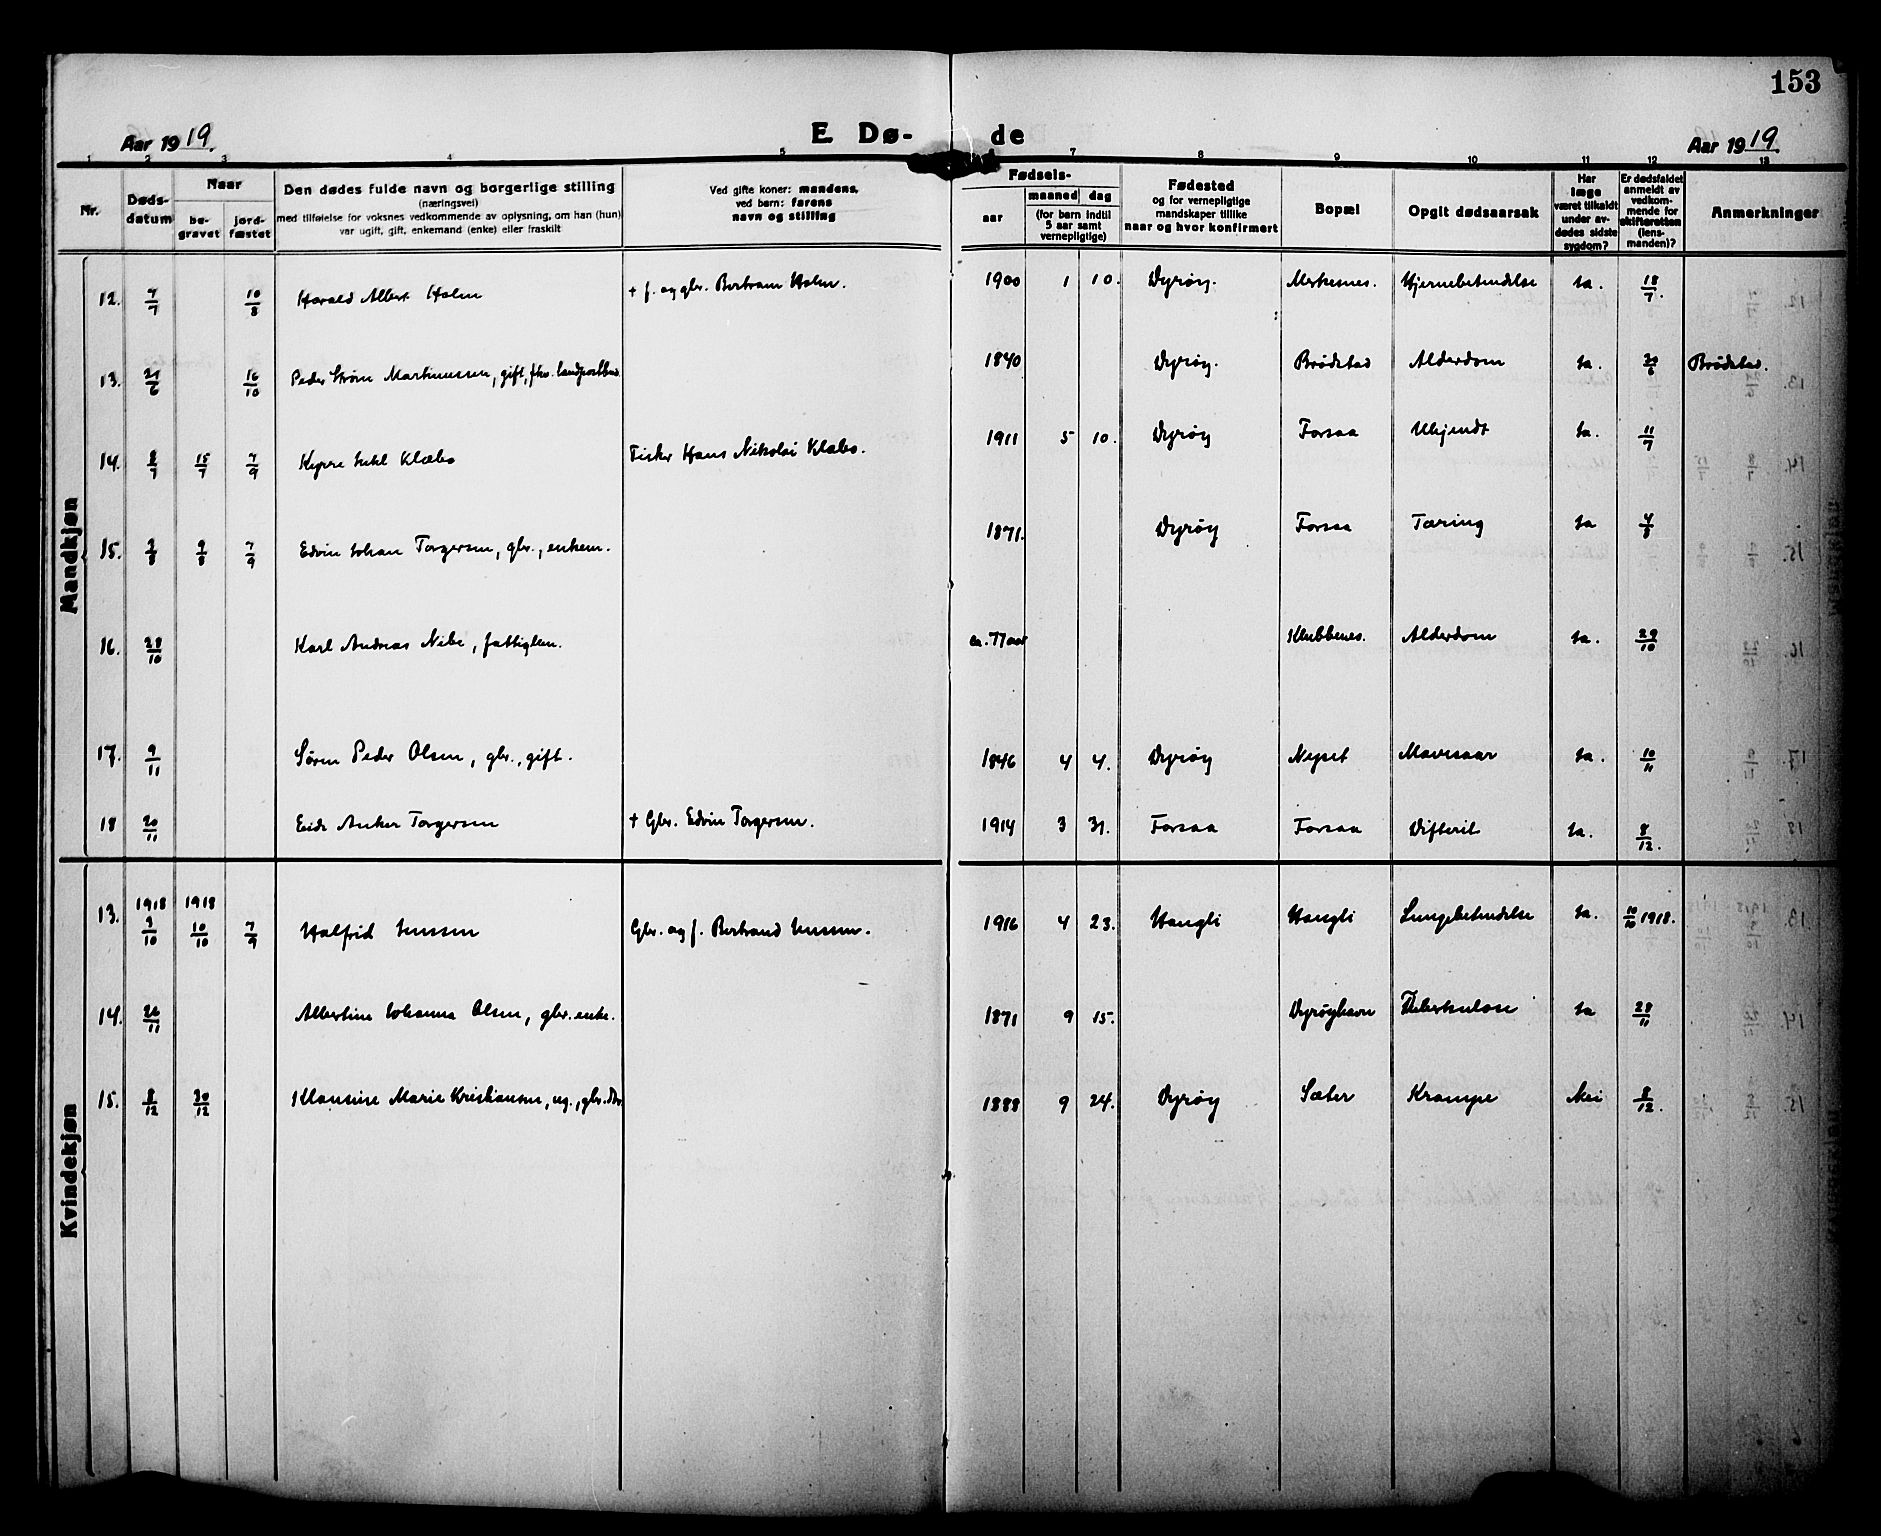 153
Aar 1919. E. Dø- de Aar 1919.
1 2 3 4 5 7 8 9 10 11 12 13
Nr.
Døds-
datum
Naar
be-
gravet
jord-
fæstet
Den dødes fulde navn og borgerlige stilling
(næringsvei)
med tilføielse for voksnes vedkommende av oplysning, om han (hun)
var ugift, gift, enkemand (enke) eller fraskilt
Ved gifte koner: mandens,
ved børn: farens
navn og stilling
Fødsels-
aar
maaned dag
(for barn indtil
5 aar samt
vernepligtige)
Fødested
og for vernepligtige
mandskaper tillike
naar og hvor konfirmert
Bopæl
Opgit dødsaarsak
Har
læge
været tilkaldt
under av-
dødes sidste
sygdom?
Er dødsfaldet
anmeldt av
vedkom-
mende for
skifteretten
(lens-
manden)?
Anmerkninger
Mandkjøn
12. 7/7 10/8 Harald Albert Holm + f. og gbr. Bertram Holm. 1900 1 10. Dyrøy. Hjernebetendelse Ja. 18/7.
13. 16/10 Peder Strøm Martinussen, gift, 1840 Dyrøy. Brødstad Alderdom Ja. Brødstad.
14. 8/7 15/7 7/9 Klæbo Fisker Hans Nikolai Klæbo. 1911 5 10. Dyrøy Forsaa Ukjendt Ja. 11/7
15. 3/8 9/8 7/9 Edvin Johan Torgersen, gbr., enkem. 1871. Dyrøy Forsaa Tæring Ja 4/8
16. 28/10 Karl Andreas Nibe, fattiglem. ca. 77 aar Klubbenes. Alderdom Ja. 29/10
17. 9/11 Søren Peder Olsen, gbr., gift. 1846 4 4. Dyrøy Mavesaar Ja. 10/11
18 20/11 Anker Torgersen + Gbr. Edvin Torgersen. 1914 3 31. Forsaa Forsaa Difterit Ja. 8/12.
Kvindekjøn
13. 1918 3/10 1918 10/10 7/9 Halfrid Jenssen Gbr. og f. Bertrand Jenssen. 1916 4 23. Hangli Hangli Lungebetendelse Ja. 10/10 1918.
14. 26/11 Albertine Johanna Olsen, gbr. enke. 1871 9 15. Dyrøyhavn Tuberkulose Ja 28/11
15. 8/12 30/12 Klausine Marie Kristiansen, ug., gbr. Dtr. 1888 9 24. Dyrøy Sæter Krampe Nei 8/12.